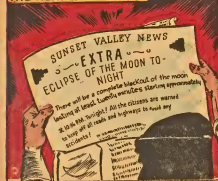 SUNSET VALLEY NEWS
EXTRA
ECLIPSE OF THE MOON TO-
NIGHT
There will be a complete blackout of the moon
lasting at least twenty minutes starting approximately
P.M. Tonight! All the citizens are warned
to keep off all roads and highways to avoid any
accidents!